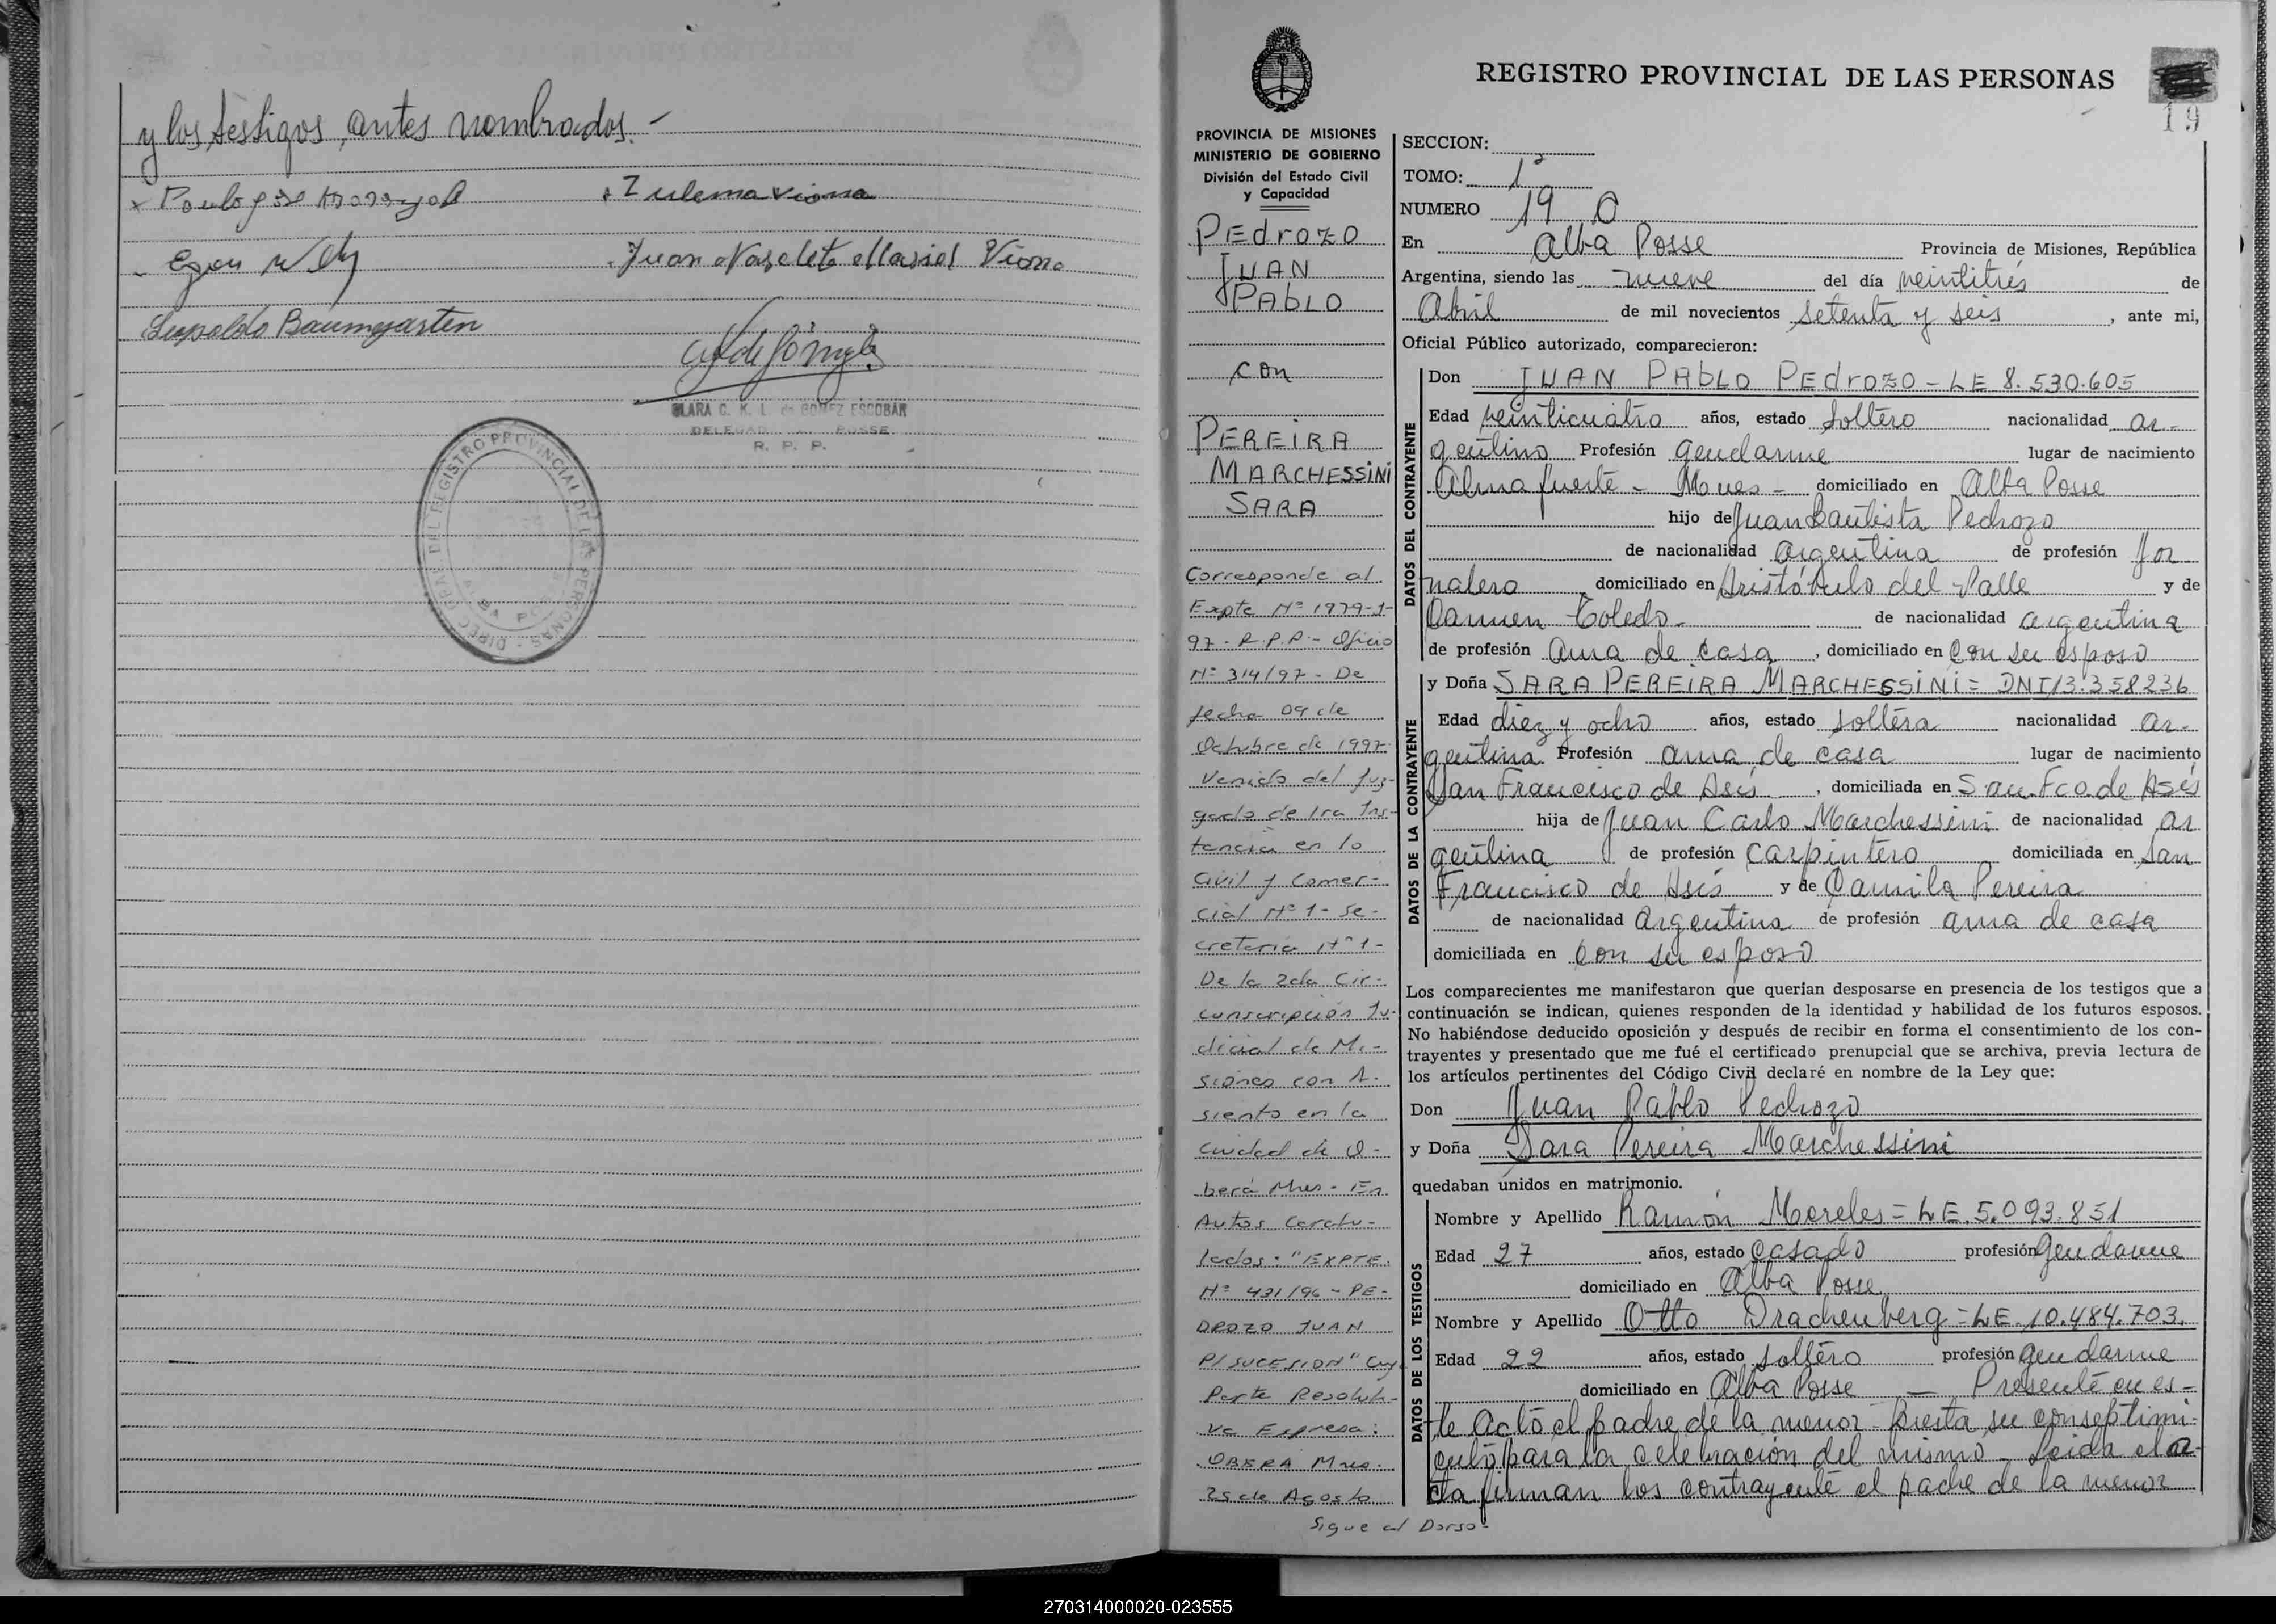 y los testigos antes nombrados.-
Zulema Viana
Egon
Juan Marial Viana
Leopoldo Baumgarten
CLARA C. K. L. de GOMEZ ESCOBAR
R. P. P.
REGISTRO PROVINCIAL DE LAS PERSONAS
19
PROVINCIA DE MISIONES
MINISTERIO DE GOBIERNO
División del Estado Civil
y Capacidad
PEdrozo
JUAN
PAbLO
con
PEREIRA
MARCHESSiNi
SARA
Corresponde al
Expte Nº 1979-1-
97- R.P.P.- Oficio
Nº 314/97 - De
fecha 09 de
Octubre de 1997
Venido del Juz-
gado de 1ra Ins-
tancia en lo
Civil y Comer-
cial Nº 1- Se-
cretaria Nº 1-
De la 2da Cir-
cunscripción Ju-
dicial de Mi-
siones con A-
siento en la
Ciudad de O-
berá Mnes - En
Autos Caratu-
lados: "EXPTE.
Nº 431/96 - PE-
DROZO JUAN
P/SUCESION" Cuy
Parte Resoluti-
va Expresa:
OBERA Mnes.
25 de Agosto
Sigue al Dorso-
SECCION:
TOMO: 1º
NUMERO 19
En Alba Posse Provincia de Misiones, República
Argentina, siendo las nueve del día veintitrés de
Abril de mil novecientos setenta y seis , ante mi,
Oficial Público autorizado, comparecieron:
DATOS DEL CONTRAYENTE
Don JUAN PAbLO PEdrozo - LE 8.530.605
Edad veinticuatro años, estado soltero nacionalidad ar-
gentino Profesión gendarme lugar de nacimiento
Almafuerte - Mnes - domiciliado en Alba Posse
hijo de Juan Bautista Pedrozo
de nacionalidad argentina de profesión Jor
nalero domiciliado en Aristóbulo del Valle y de
Carmen Toledo- de nacionalidad argentina
de profesión Ama de casa , domiciliado en con su esposo
DATOS DE LA CONTRAYENTE
y Doña SARA PEREIRA MARCHESSiNi = DNI 13.358236
Edad diez y ocho años, estado soltera nacionalidad ar-
gentina Profesión ama de casa lugar de nacimiento
San Francisco de Asís , domiciliada en San.Fco.de Asís
hija de Juan Carlo Marchessini de nacionalidad ar
gentina de profesión carpintero domiciliada en San
Francisco de Asís y de Camila Pereira
de nacionalidad argentina de profesión ama de casa
domiciliada en con su esposo
Los comparecientes me manifestaron que querían desposarse en presencia de los testigos que a
continuación se indican, quienes responden de la identidad y habilidad de los futuros esposos.
No habiéndose deducido oposición y después de recibir en forma el consentimiento de los con-
trayentes y presentado que me fué el certificado prenupcial que se archiva, previa lectura de
los artículos pertinentes del Código Civil declaré en nombre de la Ley que:
Don Juan Pablo Pedrozo
y Doña Sara Pereira Marchessini
quedaban unidos en matrimonio.
DATOS DE LOS TESTIGOS
Nombre y Apellido Ramón Moreles = LE.5.093.851
Edad 27 años, estado casado profesión gendarme
domiciliado en Alba Posse
Nombre y Apellido Otto Drachenberg = LE.10.484.703.
Edad 22 años, estado soltero profesión gendarme
domiciliado en Alba Posse - Presente en es-
te acto el padre de la menor - presta su conseptimi-
ento para la celebración del mismo - Leida el a-
cta firman los contrayente el padre de la menor
270314000020-023555